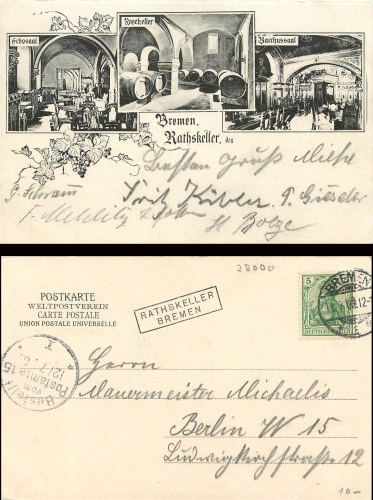 Echosaal
Rosekeller
Bacchussaal
Bremen,
Rathskeller, den
Besten Gruß Miehe
P. Schramm Fritz Köhler P. Gieseler
H. Bolze
28000
POSTKARTE
WELTPOSTVEREIN
CARTE POSTALE
UNION POSTALE UNIVERSELLE
RATHSKELLER
BREMEN
5
BREMEN
Bestellt
vom
Postamte 15
Herrn
Mauermeister Michaelis
Berlin W 15
Ludwigkirchstraße 12
10-